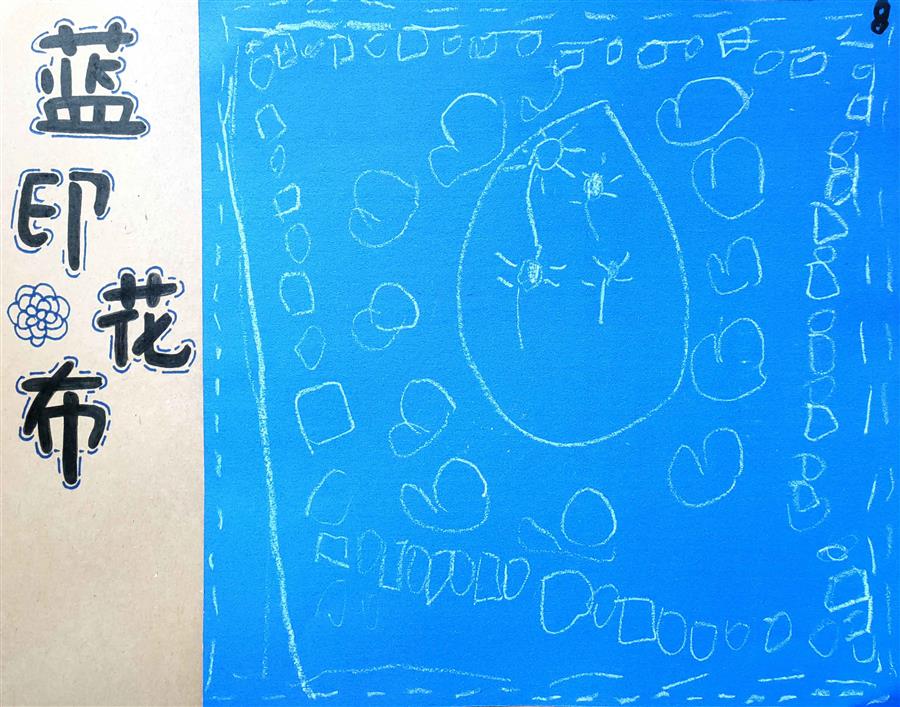 蓝
印
花
布
8